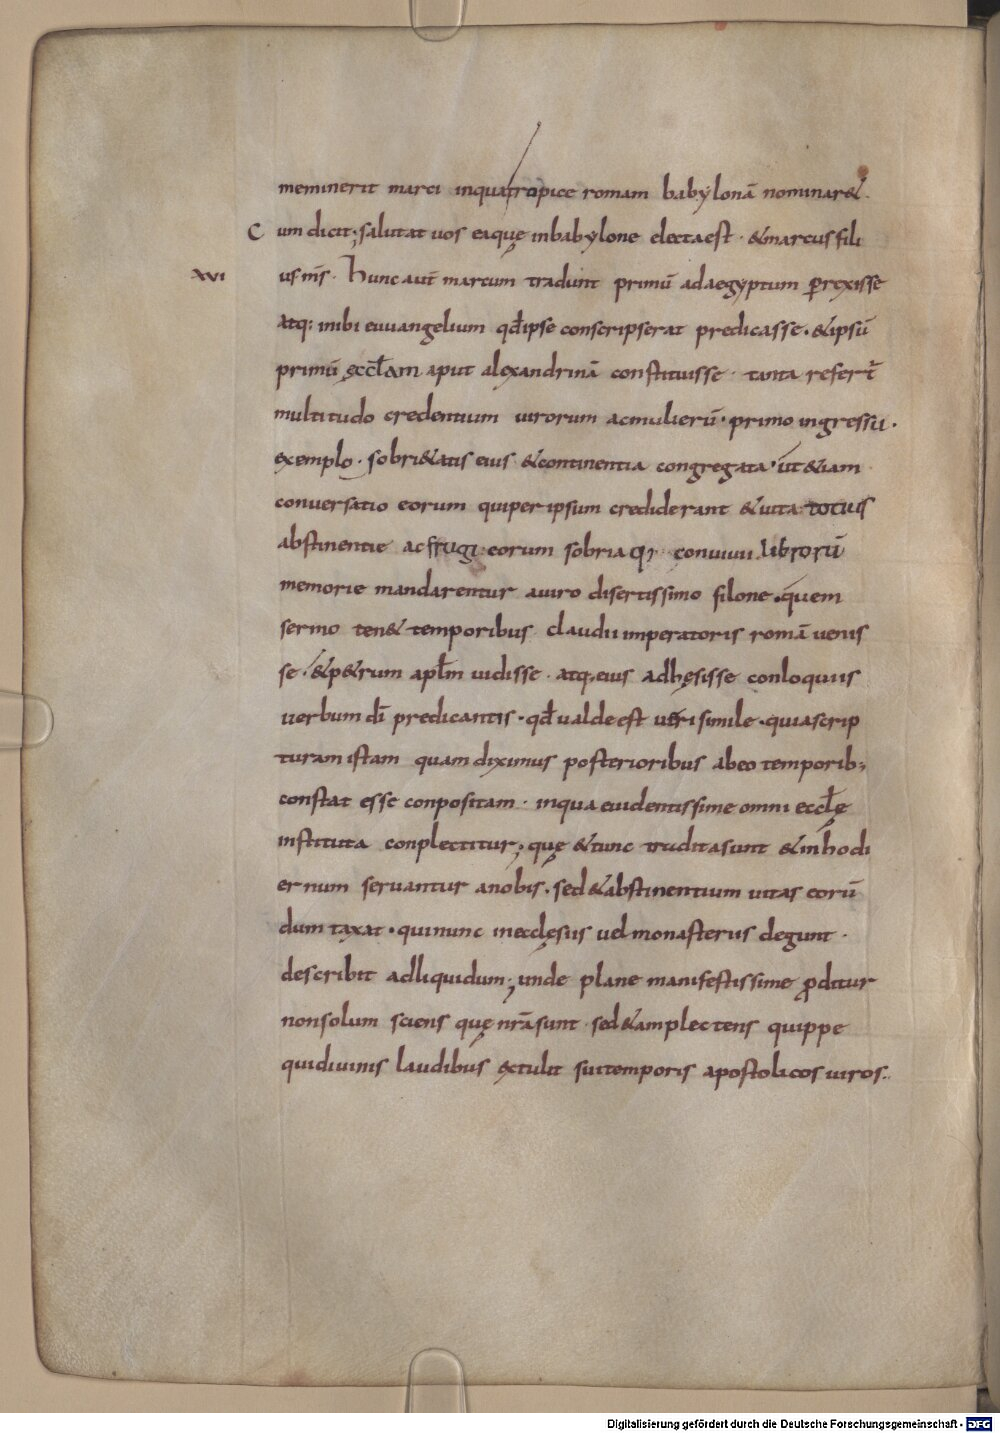 meminerit marci inqua tropice romam babylonā nominar&.
Cum dicit; salutat uos eaquę inbabylone electaest · &marcusfili
xvi usm̄s. hunc aut̄ marcum tradunt primū adaegyptum ꝑrexisse
atq: inibi euuangelium qđipse conscripserat predicasse. &ipsū
primū ęccłam aput alexandrinā constituisse · tanta refert̄
multitudo credentium uirorum acmulierū · primo ingressu.
exemplo · sobri&atis eius &continentia congregata · ut&iam
conuersatio eorum quiperipsum crediderant &uita totius
abstinentie acfrugi eorum sobriaq; conuiuii librorū
memorie mandarentur auiro disertissimo filone · quem
sermo ten& temporibus claudii imperatoris romā uenis
se · &p&rum aplm̄ uidisse · atq; eius adhęsisse conloquiis
uerbum dī predicantis · qđ ualdeest uerisimile · quiascrip
turam istam quam diximus posterioribus abeo temporib;
constat esse conpositam · inqua euidentissime omni eccłę
instituta conplectitur; quę &tunc traditasunt &inhodi
ernum seruantur anobis · sed &abstinentium uitas eorū
dum taxat · quinunc inecclęsiis uel monasteriis degunt ·
describit adliquidum; unde plane manifestissime ꝓditur
nonsolum sciens quę nrāsunt · sed &amplectens quippe
quidiuinis laudibus extulit suitemporis apostolicos uiros..
Digitalisierung gefördert durch die Deutsche Forschungsgemeinschaft - DFG